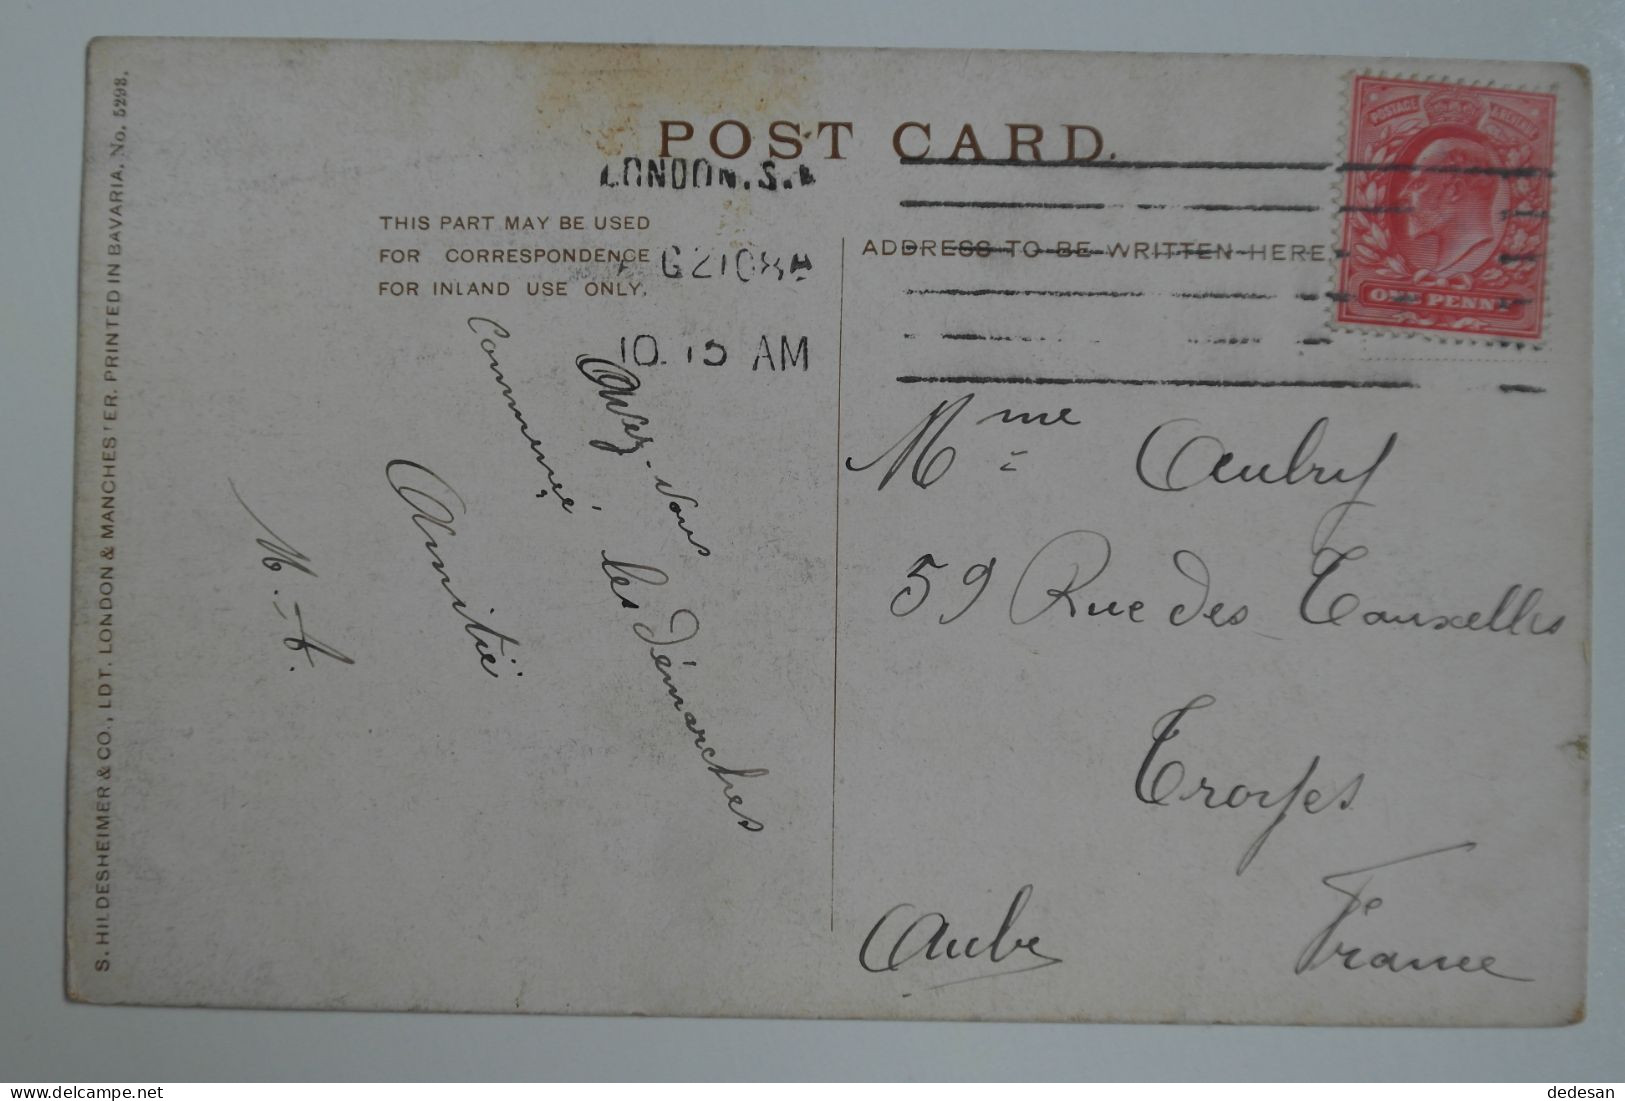 POST CARD.
LONDON. S.
10. 15 AM
THIS PART MAY BE USED
FOR CORRESPONDENCE
FOR INLAND USE ONLY.
ADDRESS TO BE WRITTEN HERE.
POSTAGE & REVENUE
ONE PENNY
Avez-vous
commencé
les démarches
Amitié
Mme Aubry
59 Rue des Tauxelles
Troyes
Aube France
S. HILDESHEIMER & CO., LDT. LONDON & MANCHESTER. PRINTED IN BAVARIA. No. 5293.
delcampe.net
dedesan